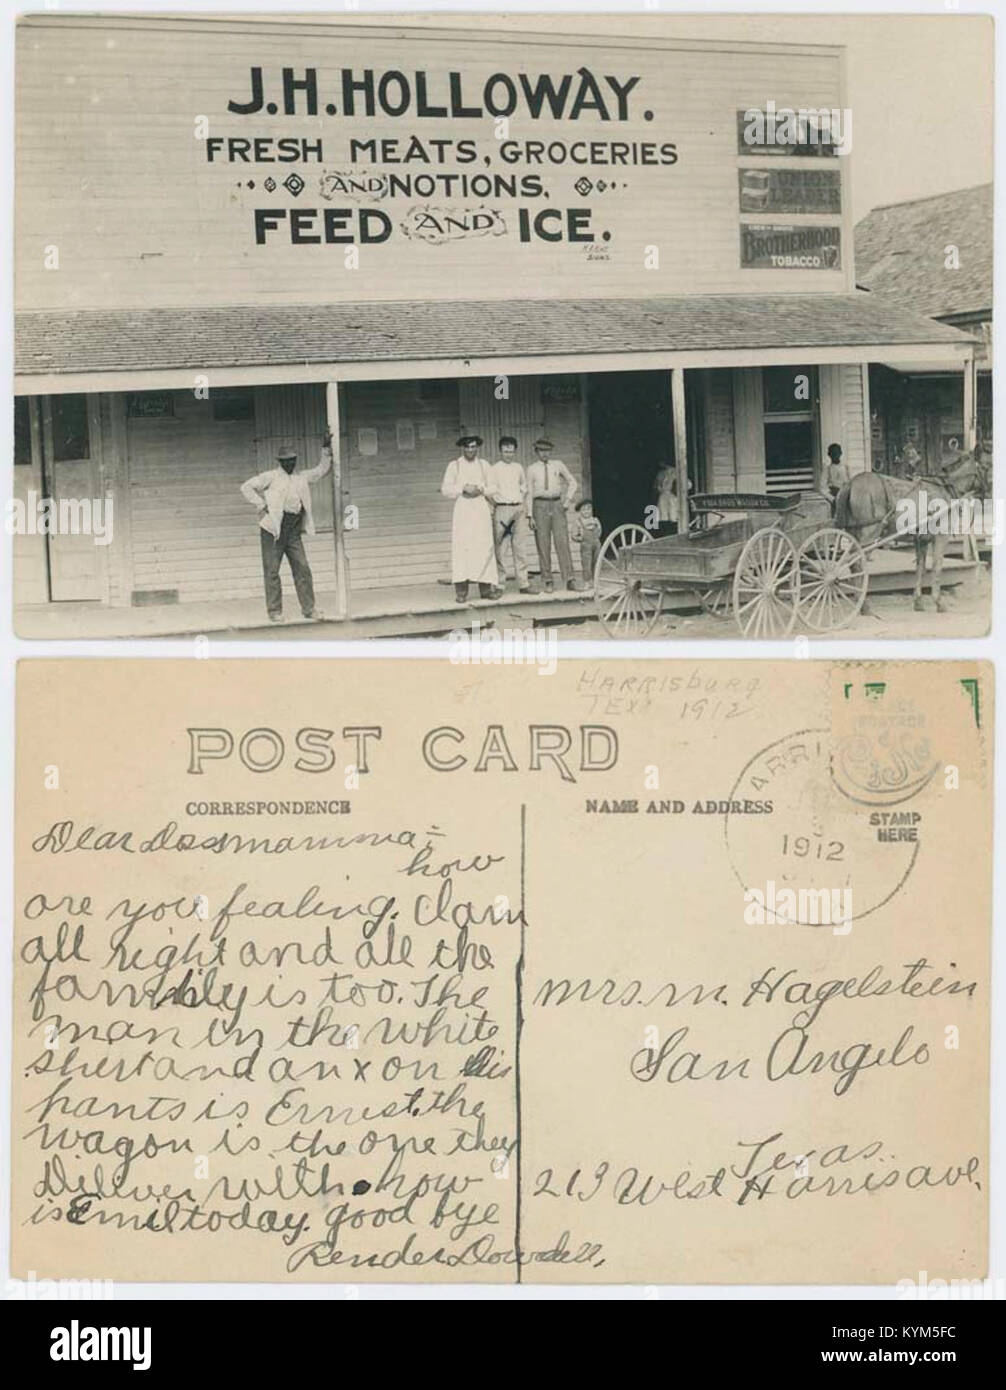 J.H.HOLLOWAY.
FRESH MEATS, GROCERIES
AND NOTIONS.
FEED AND ICE.
UNION
LEADER
BROTHERHOOD
TOBACCO
HARRISBURG
TEX. 1912
POST CARD
CORRESPONDENCE
NAME AND ADDRESS
STAMP
HERE
ARRI
1912
Dear Dossmamma =
how
are you fealing. I am
all right and all the
family is too. The
man in the white
shert and an x on his
pants is Ernest. the
wagon is the one they
Diliver with. how
is Emil today. good bye
Render Dowdell,
Mrs. M. Hagelstein
San Angelo
Texas.
213 West Harris ave.
alamy
Image ID: KYM5FC
www.alamy.com